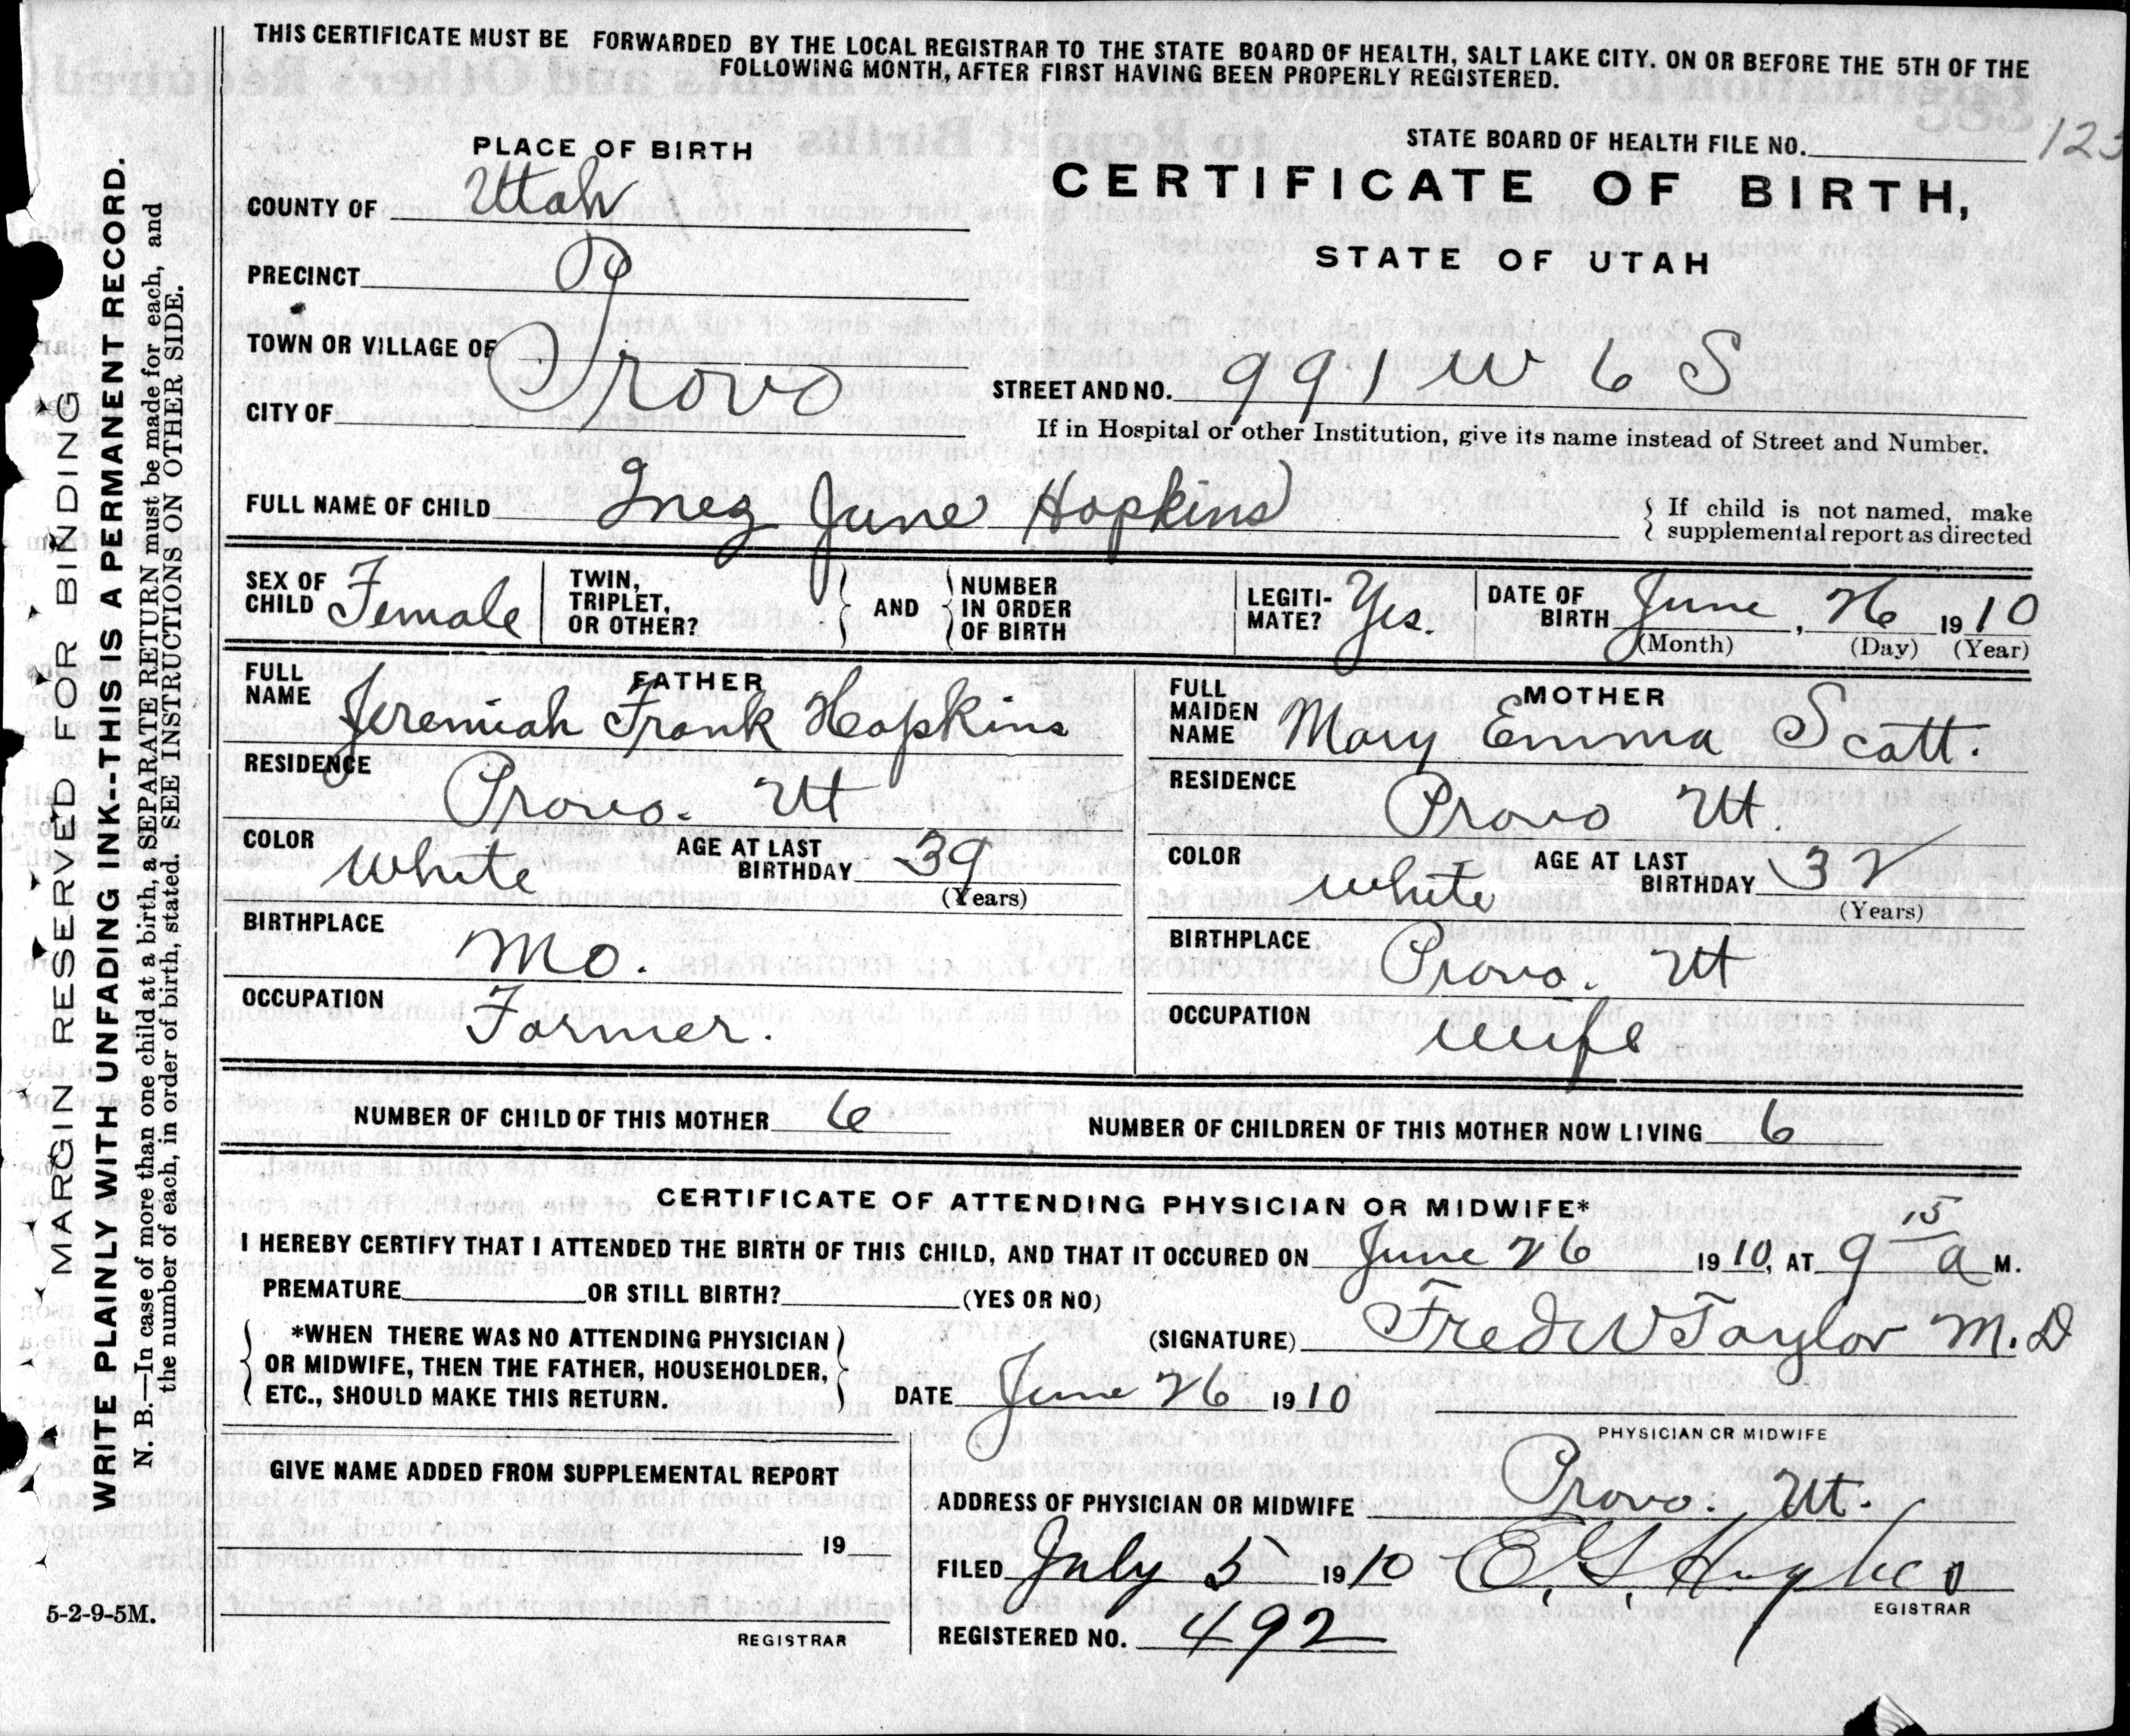 THIS CERTIFICATE MUST BE FORWARDED BY THE LOCAL REGISTRAR TO THE STATE BOARD OF HEALTH, SALT LAKE CITY. ON OR BEFORE THE 5TH OF THE
FOLLOWING MONTH, AFTER FIRST HAVING BEEN PROPERLY REGISTERED.
PLACE OF BIRTH
STATE BOARD OF HEALTH FILE NO. 123
COUNTY OF Utah
CERTIFICATE OF BIRTH,
STATE OF UTAH
PRECINCT
TOWN OR VILLAGE OF Provo
STREET AND NO. 991 W 6 S
CITY OF
If in Hospital or other Institution, give its name instead of Street and Number.
FULL NAME OF CHILD Inez June Hopkins
If child is not named, make
supplemental report as directed
SEX OF CHILD Female
TWIN, TRIPLET, OR OTHER?
AND
NUMBER IN ORDER OF BIRTH
LEGITI-MATE? Yes.
DATE OF BIRTH June, 26 1910
(Month) (Day) (Year)
FATHER
FULL NAME Jeremiah Frank Hopkins
RESIDENCE Provo. Ut
COLOR White
AGE AT LAST BIRTHDAY 39
(Years)
BIRTHPLACE Mo.
OCCUPATION Farmer.
MOTHER
FULL MAIDEN NAME Mary Emma Scott.
RESIDENCE Provo Ut.
COLOR White
AGE AT LAST BIRTHDAY 32
(Years)
BIRTHPLACE Provo. Ut
OCCUPATION Wife
NUMBER OF CHILD OF THIS MOTHER 6
NUMBER OF CHILDREN OF THIS MOTHER NOW LIVING 6
CERTIFICATE OF ATTENDING PHYSICIAN OR MIDWIFE*
I HEREBY CERTIFY THAT I ATTENDED THE BIRTH OF THIS CHILD, AND THAT IT OCCURED ON June 26 1910, AT 9 15 a M.
PREMATURE OR STILL BIRTH? (YES OR NO)
*WHEN THERE WAS NO ATTENDING PHYSICIAN
OR MIDWIFE, THEN THE FATHER, HOUSEHOLDER,
ETC., SHOULD MAKE THIS RETURN.
(SIGNATURE) Fred W Taylor M.D
DATE June 26 1910
PHYSICIAN OR MIDWIFE
GIVE NAME ADDED FROM SUPPLEMENTAL REPORT
19
REGISTRAR
ADDRESS OF PHYSICIAN OR MIDWIFE Provo. Ut.
FILED July 5 1910 E. G. Hughes
EGISTRAR
REGISTERED NO. 492
5-2-9-5M.
MARGIN RESERVED FOR BINDING
WRITE PLAINLY WITH UNFADING INK--THIS IS A PERMANENT RECORD.
N. B.—In case of more than one child at a birth, a SEPARATE RETURN must be made for each, and
the number of each, in order of birth, stated. SEE INSTRUCTIONS ON OTHER SIDE.